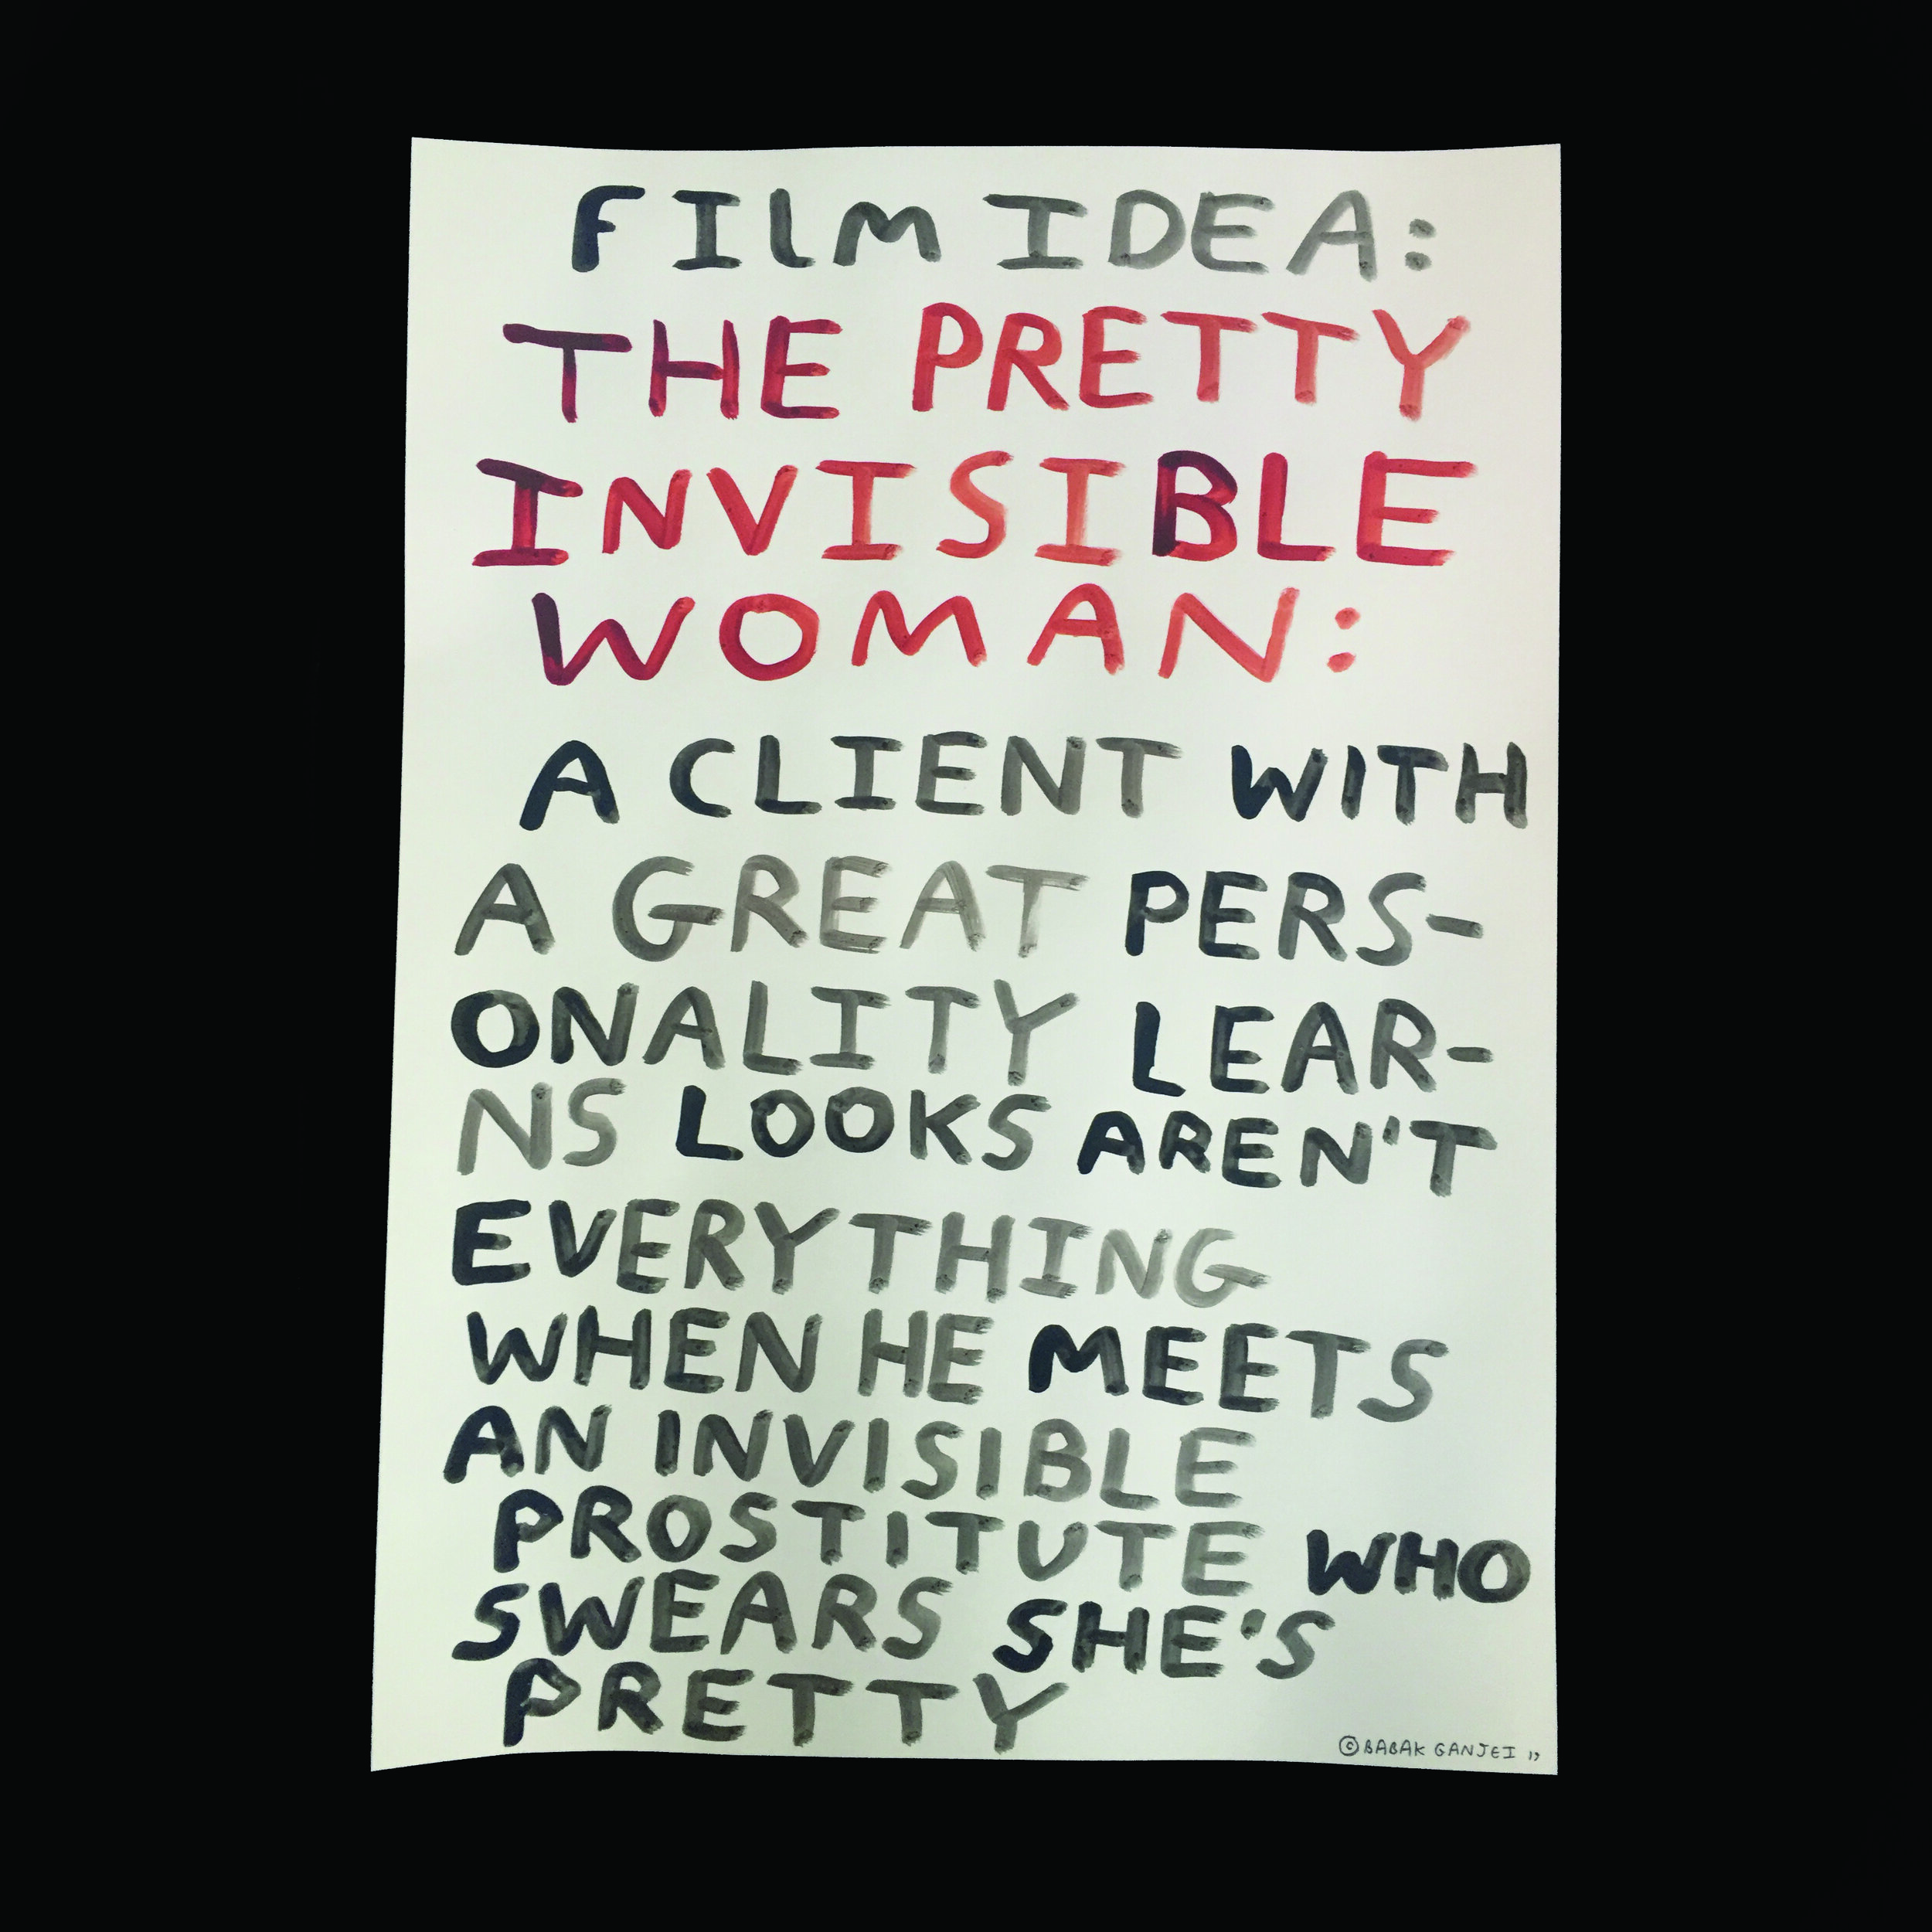 FILM IDEA:
THE PRETTY
INVISIBLE
WOMAN:
A CLIENT WITH
A GREAT PERS-
ONALITY LEAR-
NS LOOKS AREN'T
EVERYTHING
WHEN HE MEETS
AN INVISIBLE
PROSTITUTE WHO
SWEARS SHE'S
PRETTY
© BABAK GANJEI